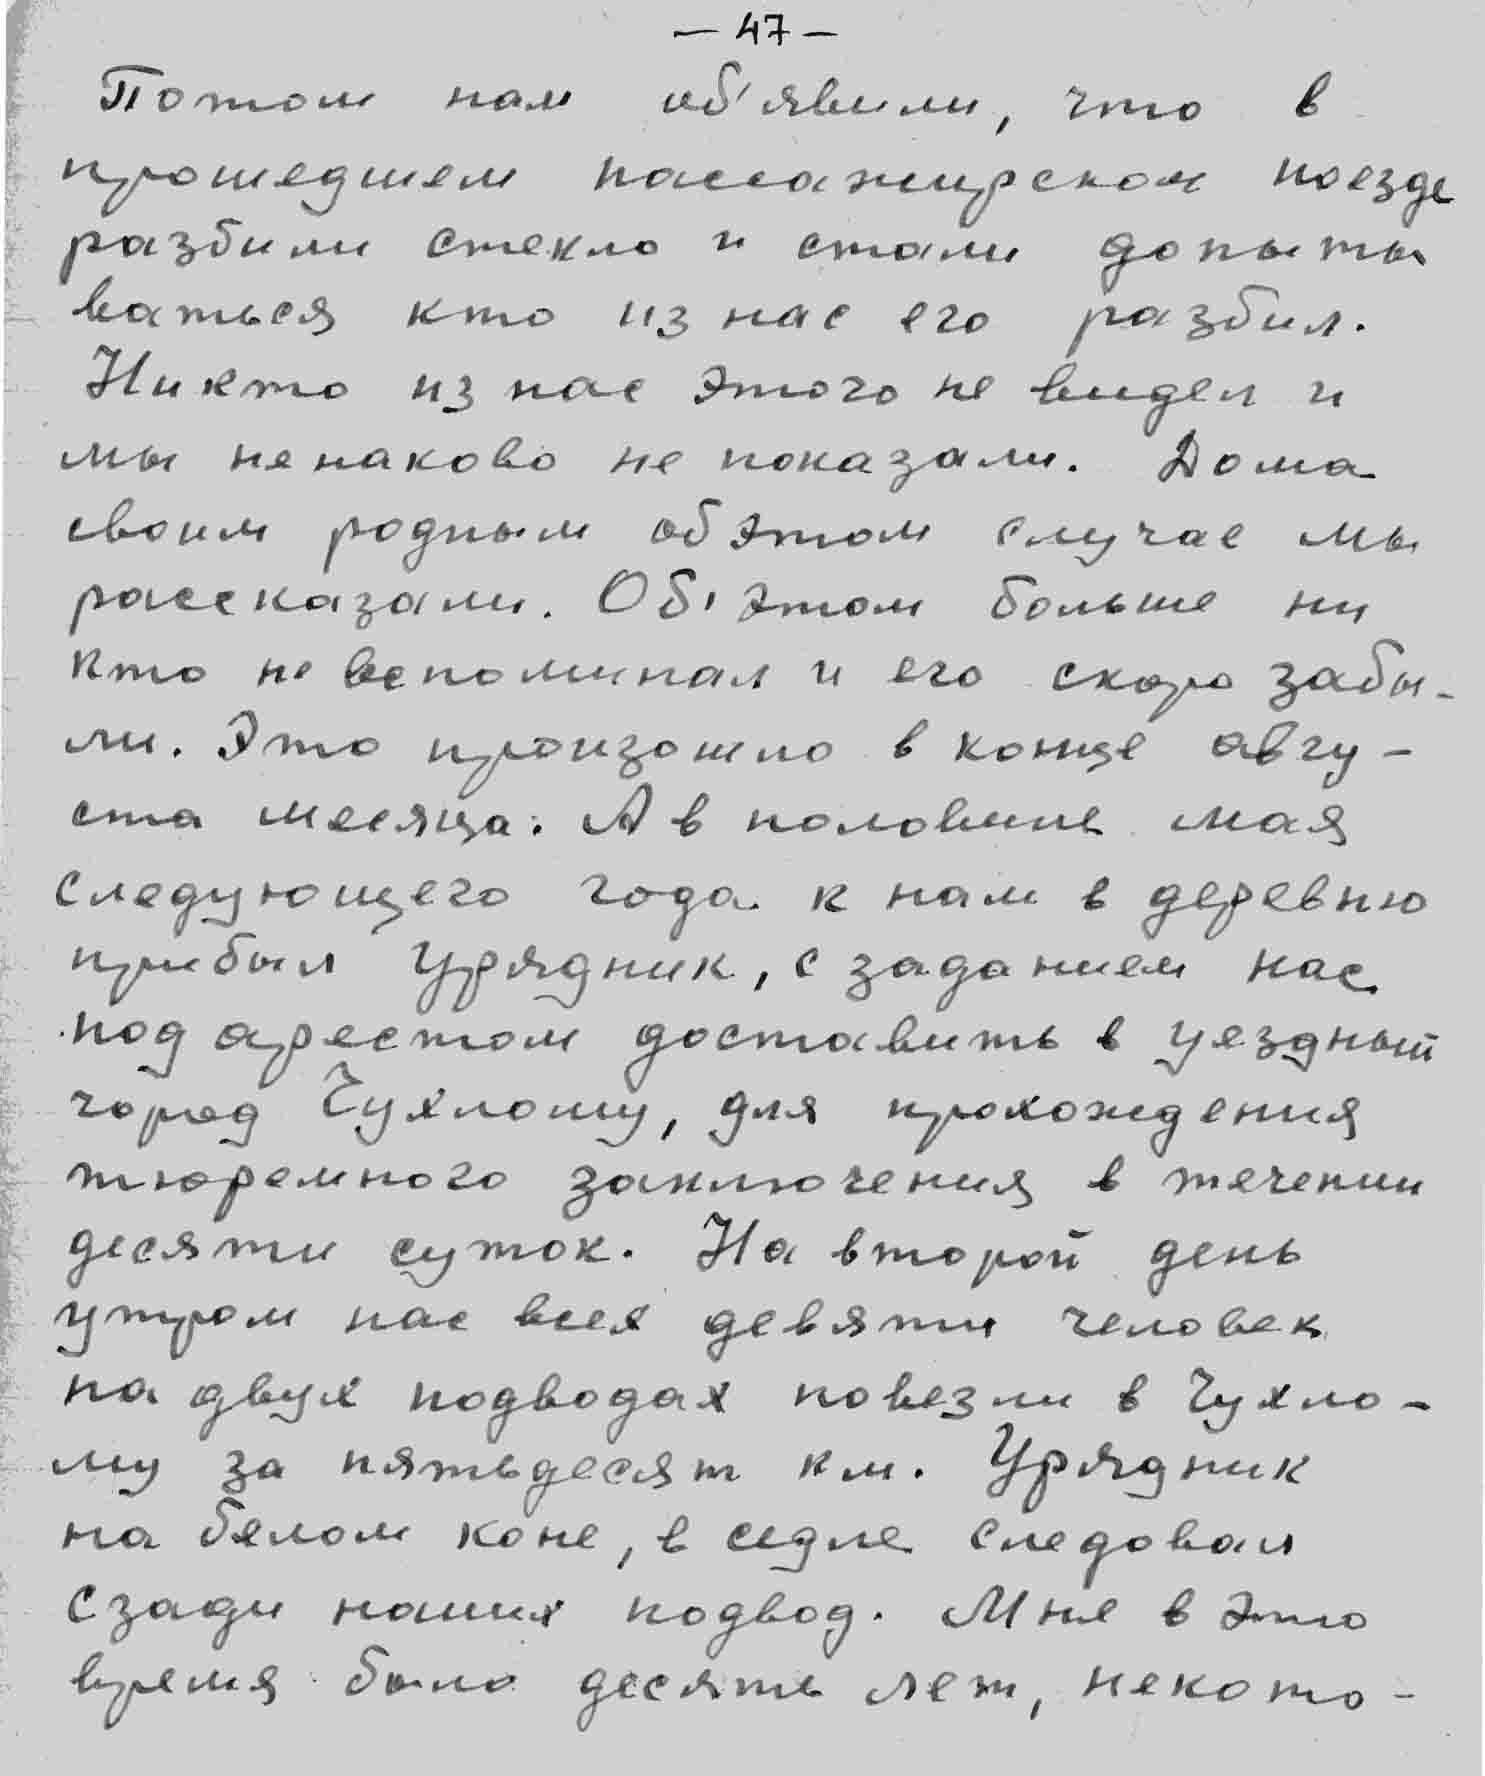 — 47 —
Потом нам об'явили, что в
прошедшем пассажирском поезде
разбили стекло и стали допыты
ваться кто из нас его разбил.
Никто из нас этого не видел и
мы ненаково не показали. Дома
своим родным об этом случае мы
рассказали. Об' этом больше ни
кто не вспоминал и его скоро забы-
ли. Это произошло в конце авгу-
ста месяца. А в половине мая
следующего года к нам в деревню
прибыл урядник, с заданием нас
под арестом доставить в уездный
город Чухлому, для прохождения
тюремного заключения в течении
десяти суток. На второй день
утром нас всех девяти человек
на двух подводах повезли в Чухло-
му за пятьдесят км. Урядник
на белом коне, в седле следовал
сзади наших подвод. Мне в это
время было десять лет, некото-